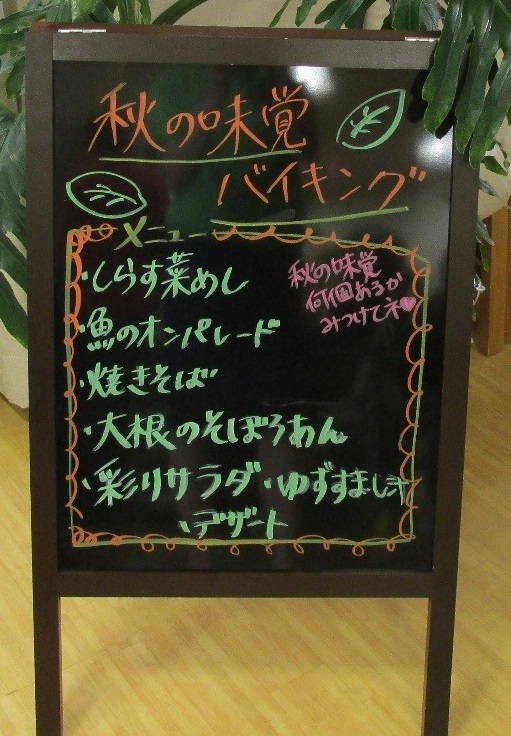 秋の味覚
バイキング
メニュー
・しらす菜めし
秋の味覚
何個あるか
みつけてネ♥
・魚のオンパレード
・焼きそば
・大根のそぼろあん
・彩りサラダ・ゆずすまし汁
・デザート